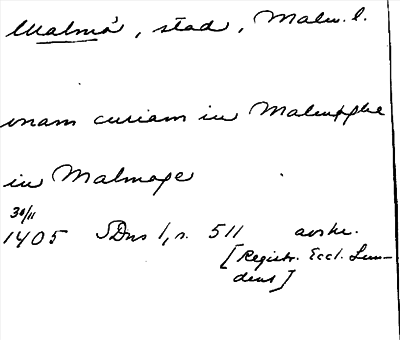 Malmö, stad, Malm. l.
unam curiam in Malmøghe
in Malmoge
30/11
1405 SDns 1, s. 511 avskr.
[Registr. Eccl. Lun-
dens]